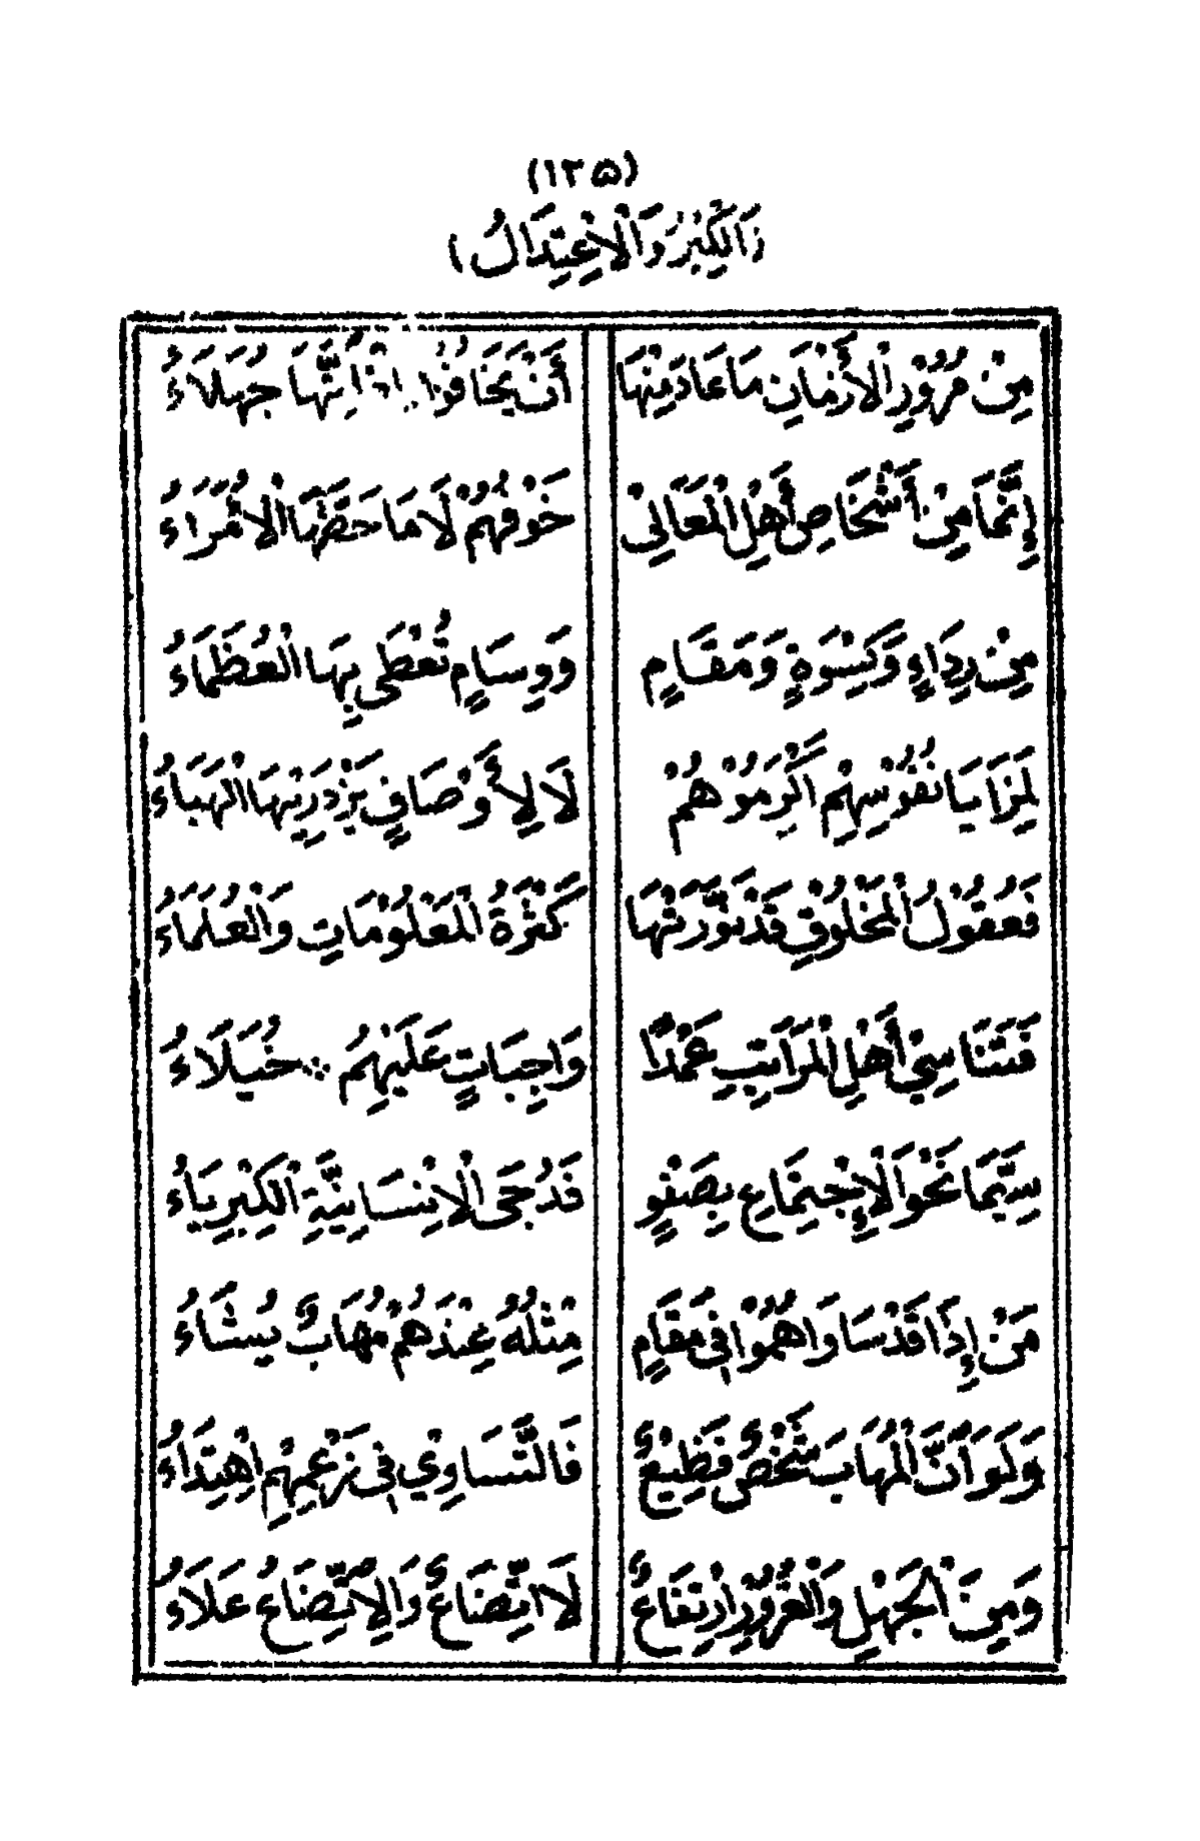 (١٢٥)
(الْكِبْرُ وَالْاِعْتِدَالُ)
مِنْ مُرُوْرِ الْأَزْمَانِ مَا عَادَ مِنْهَا أَنْ يَخَافُوْا إِذْ اِنَّهَا جُهَلَاءُ
إِنَّمَا مِنْ أَشْخَاصِ أَهْلِ الْمَعَالِىْ خَوْفُهُمْ لَا مَا حَضَّهَا الْاُمَرَاءُ
مِنْ رِدَاءٍ وَكِسْوَةٍ وَمَقَامٍ وَوِسَامٍ تُعْطَى بِهَا الْعُظَمَاءُ
لِمَزَايَا نُفُوْسِهِمْ اَكْرَمُوْهُمْ لَا لِأَوْصَافٍ يَزْدَرِيْهَا الْهَبَاءُ
فَعُقُوْلُ الْمَخْلُوْقِ قَدْ نَوَّرَتْهَا كَثْرَةُ الْمَعْلُوْمَاتِ وَالْعُلَمَاءُ
فَتَنَاسِيْ أَهْلِ الْمَرَاتِبِ عَمْدًا وَاجِبَاتٍ عَلَيْهِمُ ∴ خُيَلَاءُ
سِيَّمَا نَحْوَ الْإِجْتِمَاعِ بِصَنْوٍ قَدُجَى الْاِنْسَانِيَّةِ الْكِبْرِيَاءُ
مَنْ إِذَا قَدْ سَاوَاهُمُوْا فِى مَقَامٍ مِثْلُهُ عِنْدَهُمْ مُهَابٌ يُسَاءُ
وَلَوَ اَنَّ الْمُهَابَ شَخْصٌ فَظِيْعٌ فَالتَّسَاوِيْ فِى زَعْمِهِمِ اهْتِدَاءُ
وَمِنَ الْجَهْلِ وَالْغُرُوْرِ ارْتِفَاعٌ لَا اتِّضَاعٌ وَالْاِتِّضَاعُ عَلَاءُ